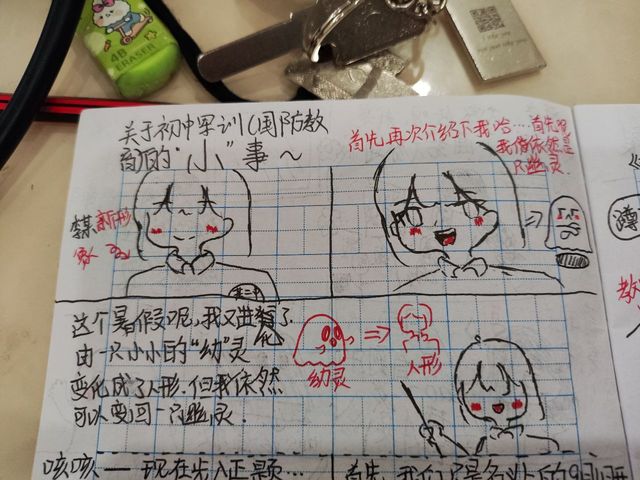 4B
ERASER
关于初中军训(国防教
育)的“小”事～
首先再次介绍下我哈…首先呢
我俏依然是
只幽灵.
新形
象
这个暑假呢,我又进化了
由一只小小的“幼”灵
变化成了人形.但我依然
可以变回一只幽灵.
幼灵
人形
咳咳——现在步入正题…
首先,我们
教